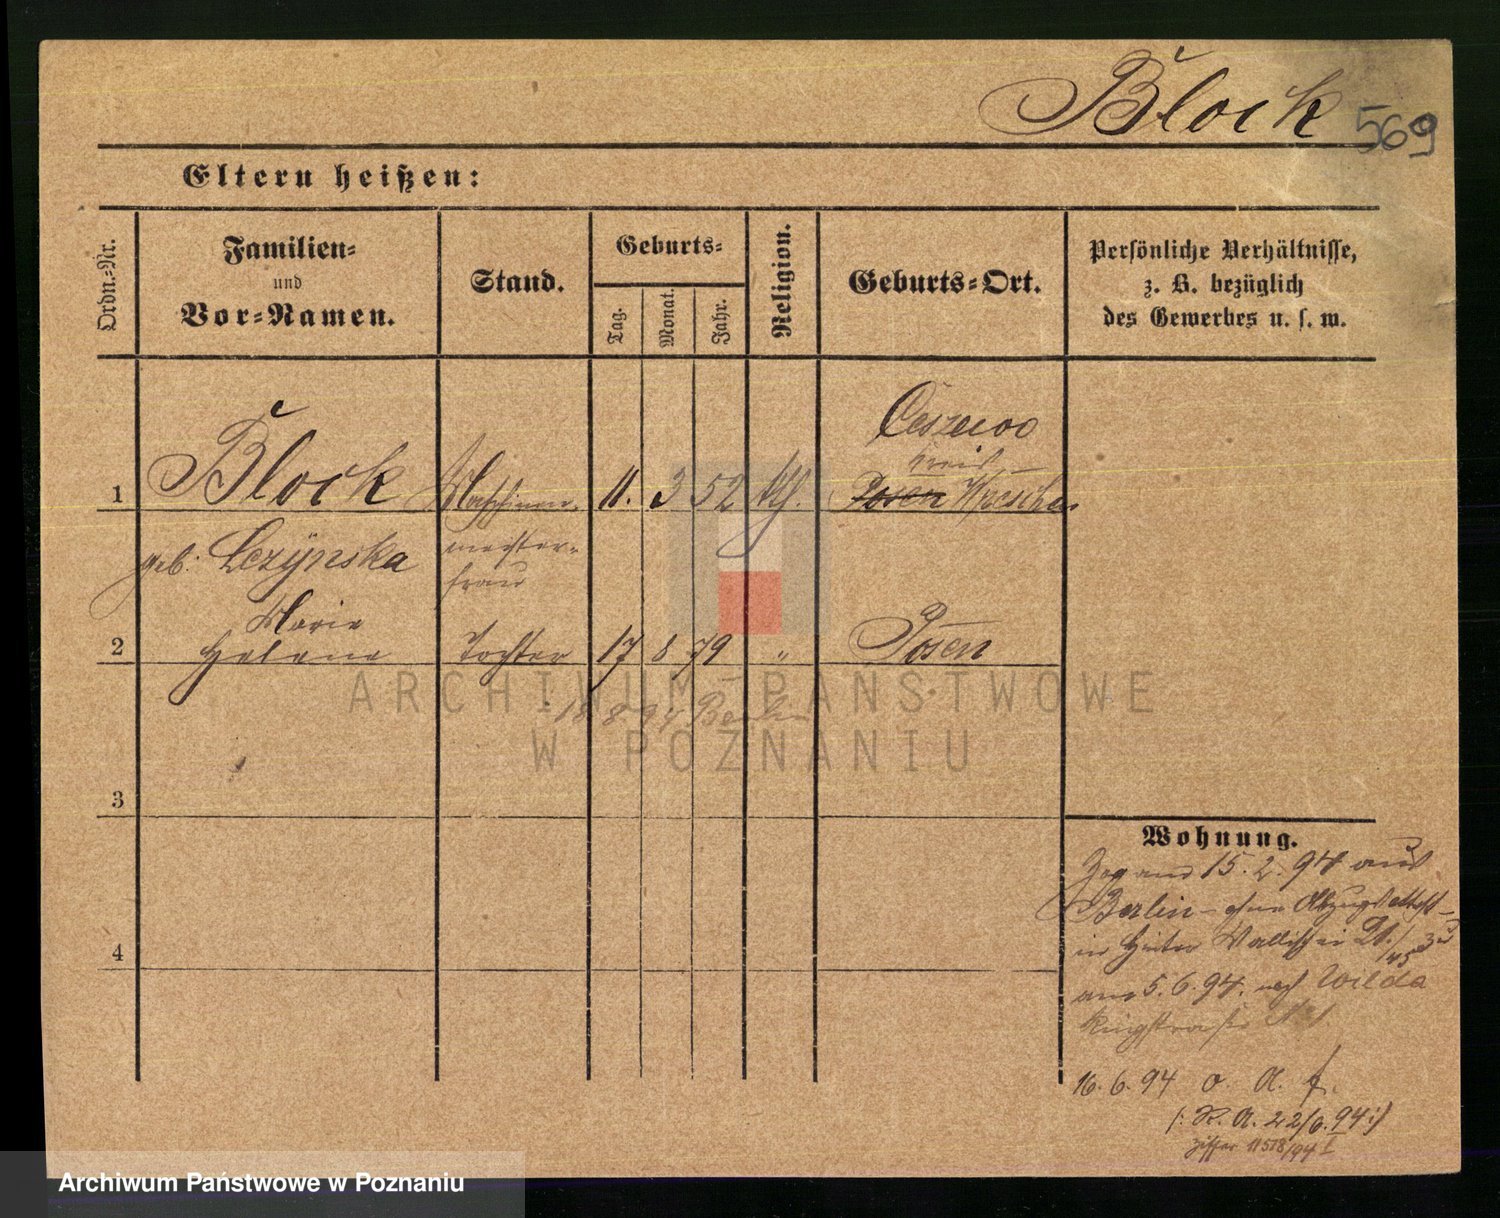 Block 569
Eltern heißen:
Ordn.-Nr.
Familien- und Vor-Namen.
Stand.
Geburts-
Tag.
Monat.
Jahr.
Religion.
Geburts-Ort.
Persönliche Verhältnisse,
z. B. bezüglich
des Gewerbes u. s. w.
1 Block Maschinen- 11. 3 52 kth. Posen Wreschen
Kreis
geb: meister-
frau
Marie
2 Helene Tochter 17 8 79 " Posen
18 8 94 Berlin
3
4
Wohnung.
Zog am 15. 2. 94 aus
Berlin - ohne Abzugsattest
in Hinter Wallischei
am 5. 6. 94. nach Wilda
16. 6. 94 o. A. f.
(: R. A. 22/6. 94 :)
Ziffer 11518/94 I
ARCHIWUM PAŃSTWOWE
W POZNANIU
Archiwum Państwowe w Poznaniu